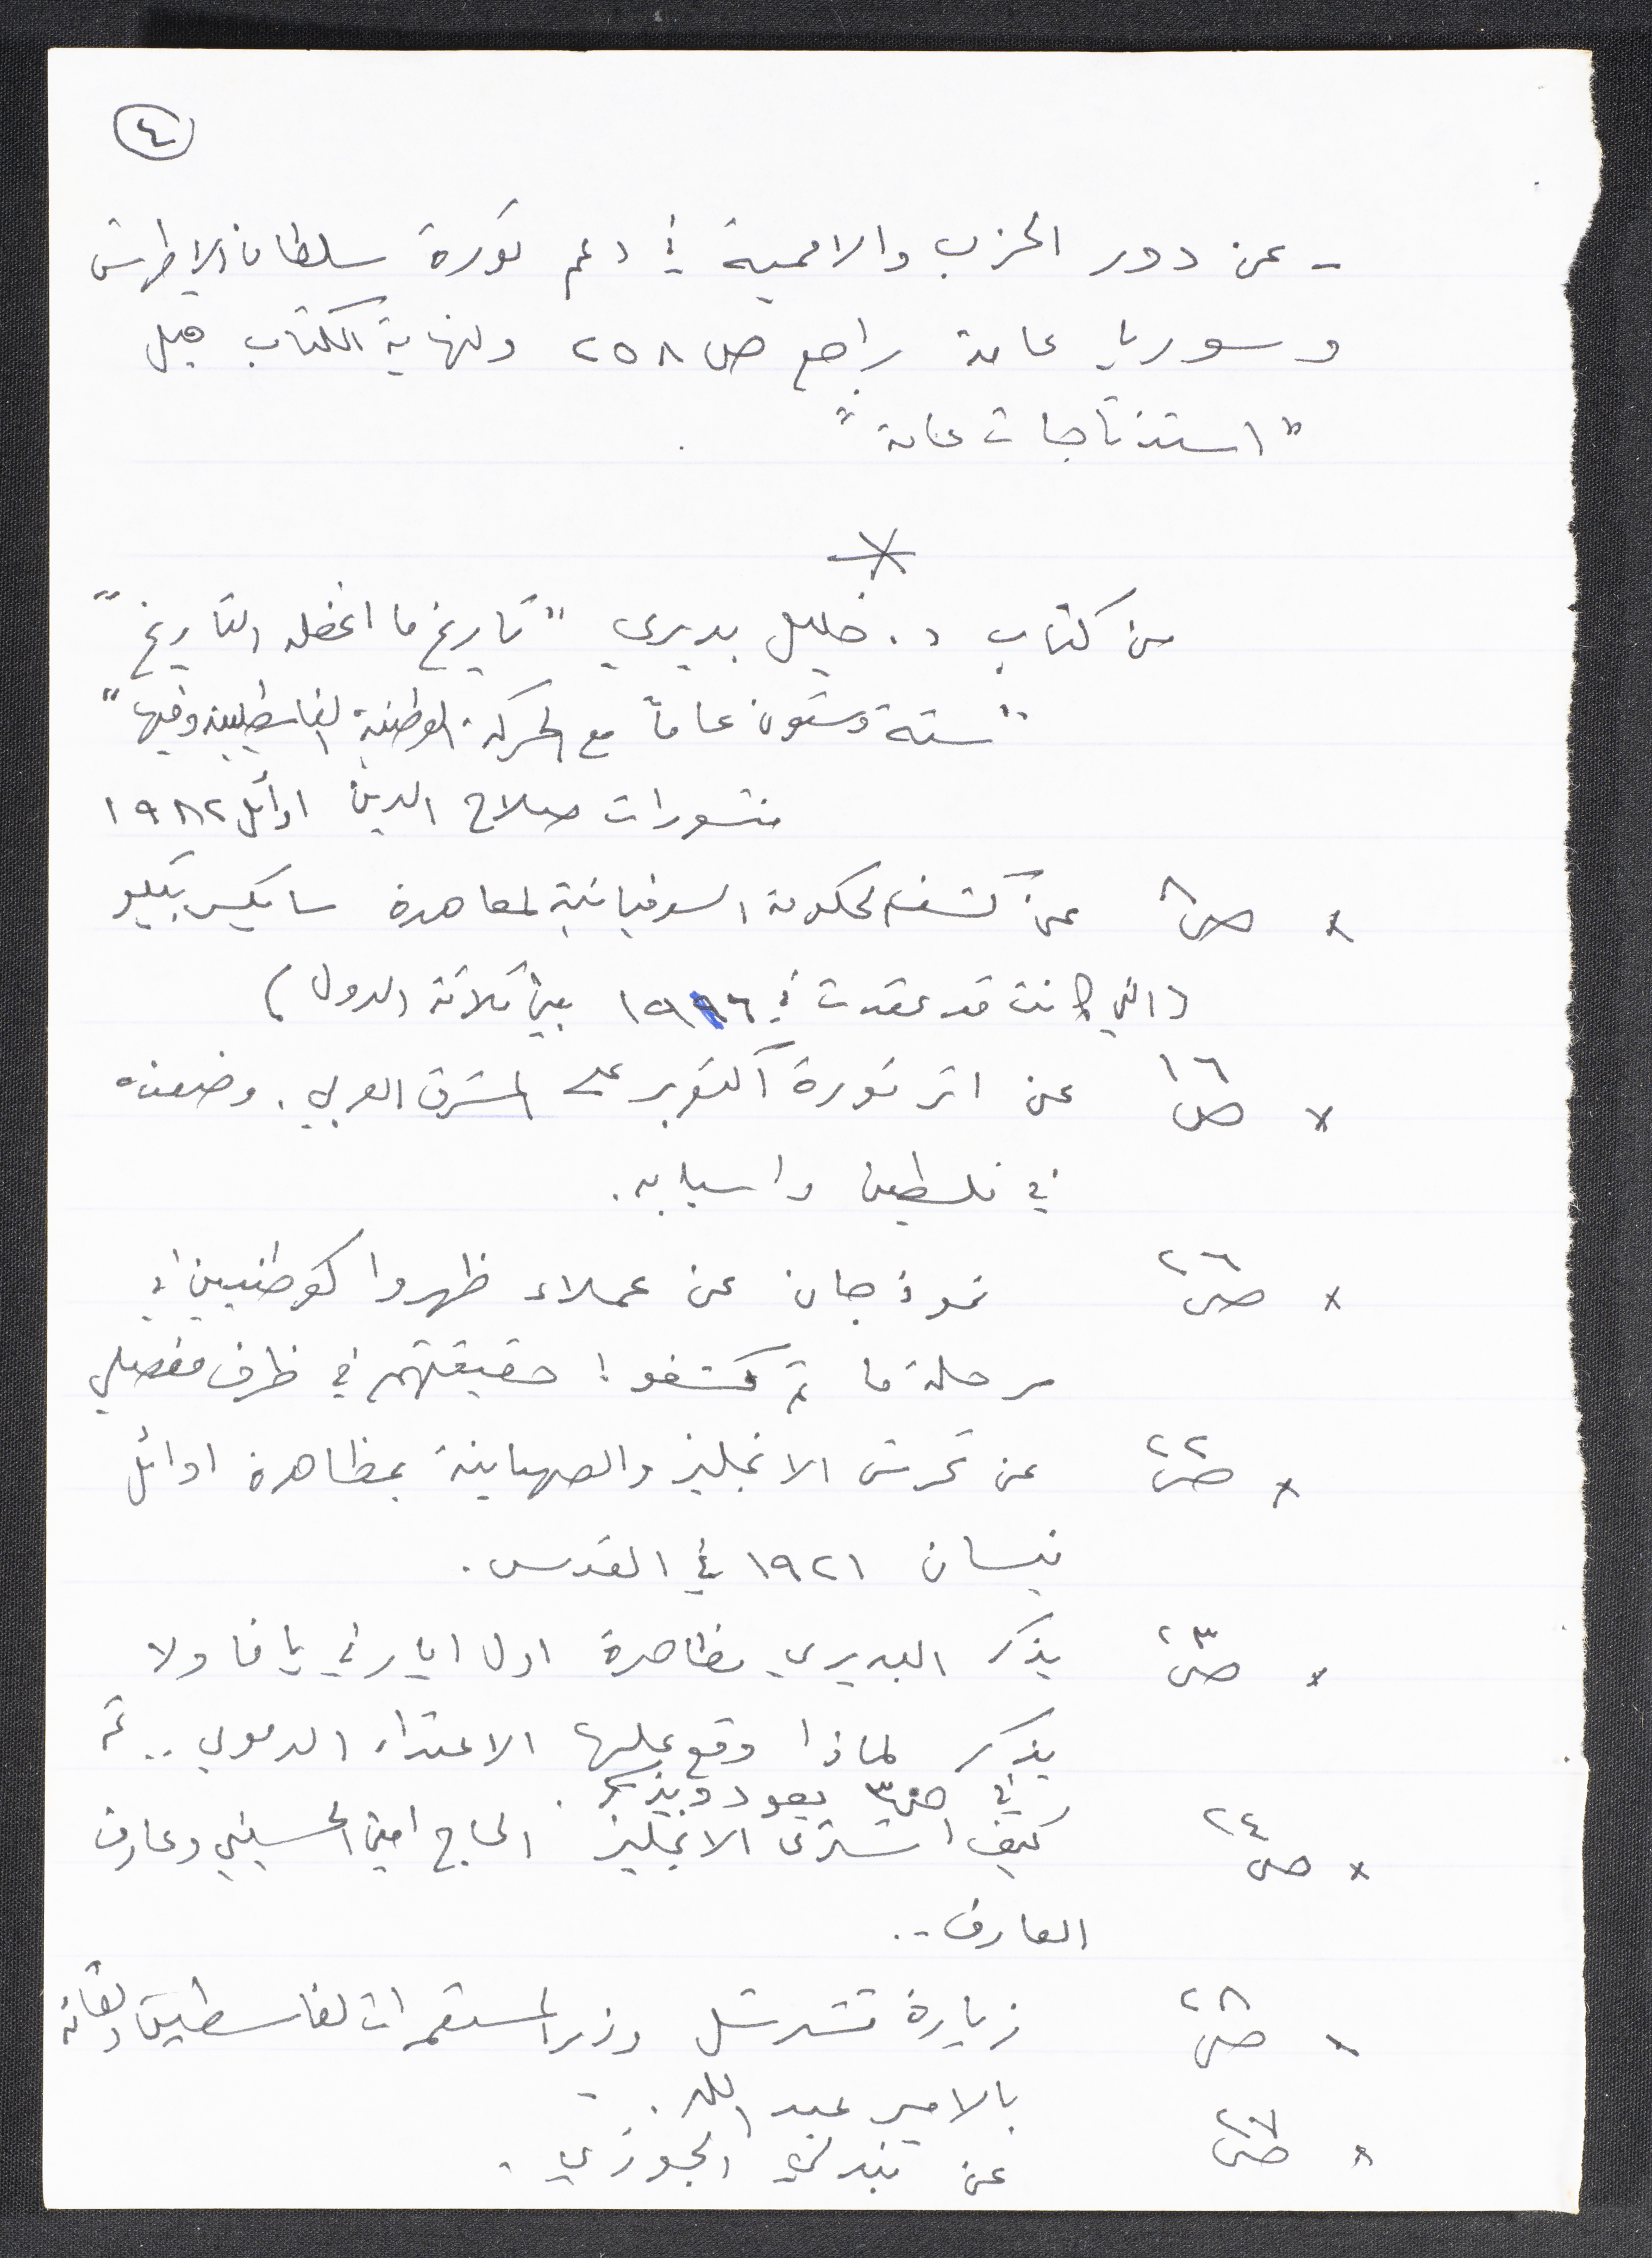 ٤
- عن دور الحزب والاممية في دعم ثورة سلطان الاطرش
وسوريا عامة راجع ص ٢٥٨ ونهاية الكتاب قبل
"استنتاجات عامة"
*
من كتاب د. خليل بديري "تاريخ ما اغفله التاريخ"
"ستة وستون عاماً مع الحركة الوطنية الفلسطينية وفيها"
منشورات صلاح الدين اوائل ١٩٨٢
x ص٨ عن كشف الحكومة السوفياتية لمعاهدة سايكس بيكو
(التي كانت قد عقدت في ١٩١٦ بين ثلاثة الدول)
x ص ١٦ عن اثر ثورة أكتوبر على المشرق العربي. وضعفه
في فلسطين واسبابه.
x ص ٢٦ نموذجان عن عملاء ظهروا كوطنيين في
مرحلة ما ثم كشفوا حقيقتهم في ظرف مفصلي
x ص ٢٢ عن تحرش الانجليز والصهاينة بمظاهرة اوائل
نيسان ١٩٢١ في القدس.
x ص ٢٣ يذكر البديري مظاهرة اول ايار في يافا ولا
يذكر لماذا وقع عليها الاعتداء الدموي .. ثم
في ص ٣ يعود ويذكر.
x ص ٢٤ كيف اشترى الانجليز الحاج امين الحسيني وعارف
العارف ..
x ص ٢٨ زيارة تشرشل وزير المستعمرات لفلسطين ولقائه
بالامير عبد الله. -
x ص ٢٧ عن بندلي الجوزي.